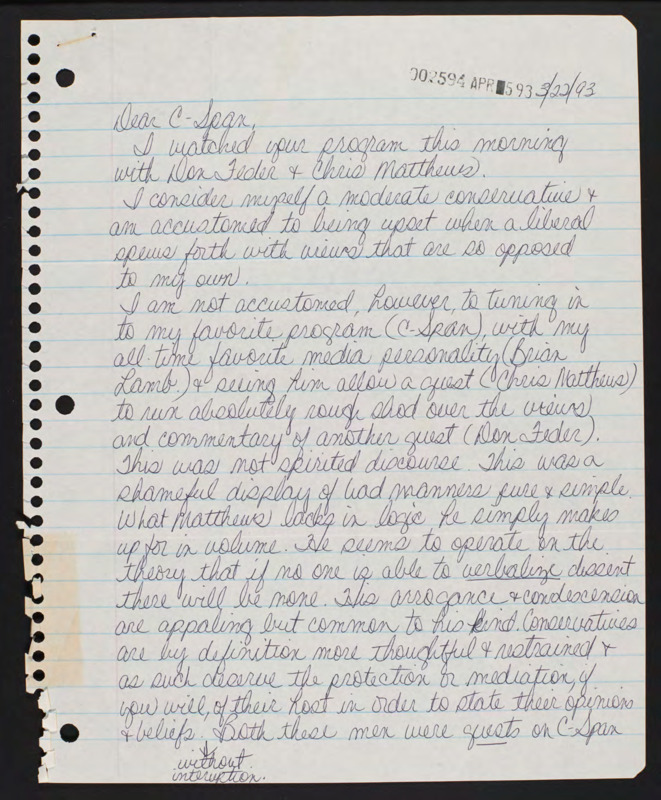 002594 APR 593 3/22/93
Dear C-Span,
I watched your program this morning
with Don Feder & Chris Matthews.
I consider myself a moderate conservative &
am accustomed to being upset when a liberal
spews forth with views that are so opposed
to my own.
I am not accustomed, however, to tuning in
to my favorite program (C-Span), with my
all-time favorite media personality (Brian
Lamb) & seeing him allow a guest (Chris Matthews)
to run absolutely rough shod over the views
and commentary of another guest (Don Feder).
This was not spirited discourse. This was a
shameful display of bad manners pure & simple.
What Matthews lacks in logic he simply makes
up for in volume. He seems to operate on the
theory that if no one is able to verbalize dissent
there will be none. His arrogance & condescension
are appaling but common to his kind. Conservatives
are by definition more thoughtful & restrained &
as such deserve the protection or mediation, if
you will, of their host in order to state their opinions
& beliefs. Both these men were guests on C-Span
without
interuption.